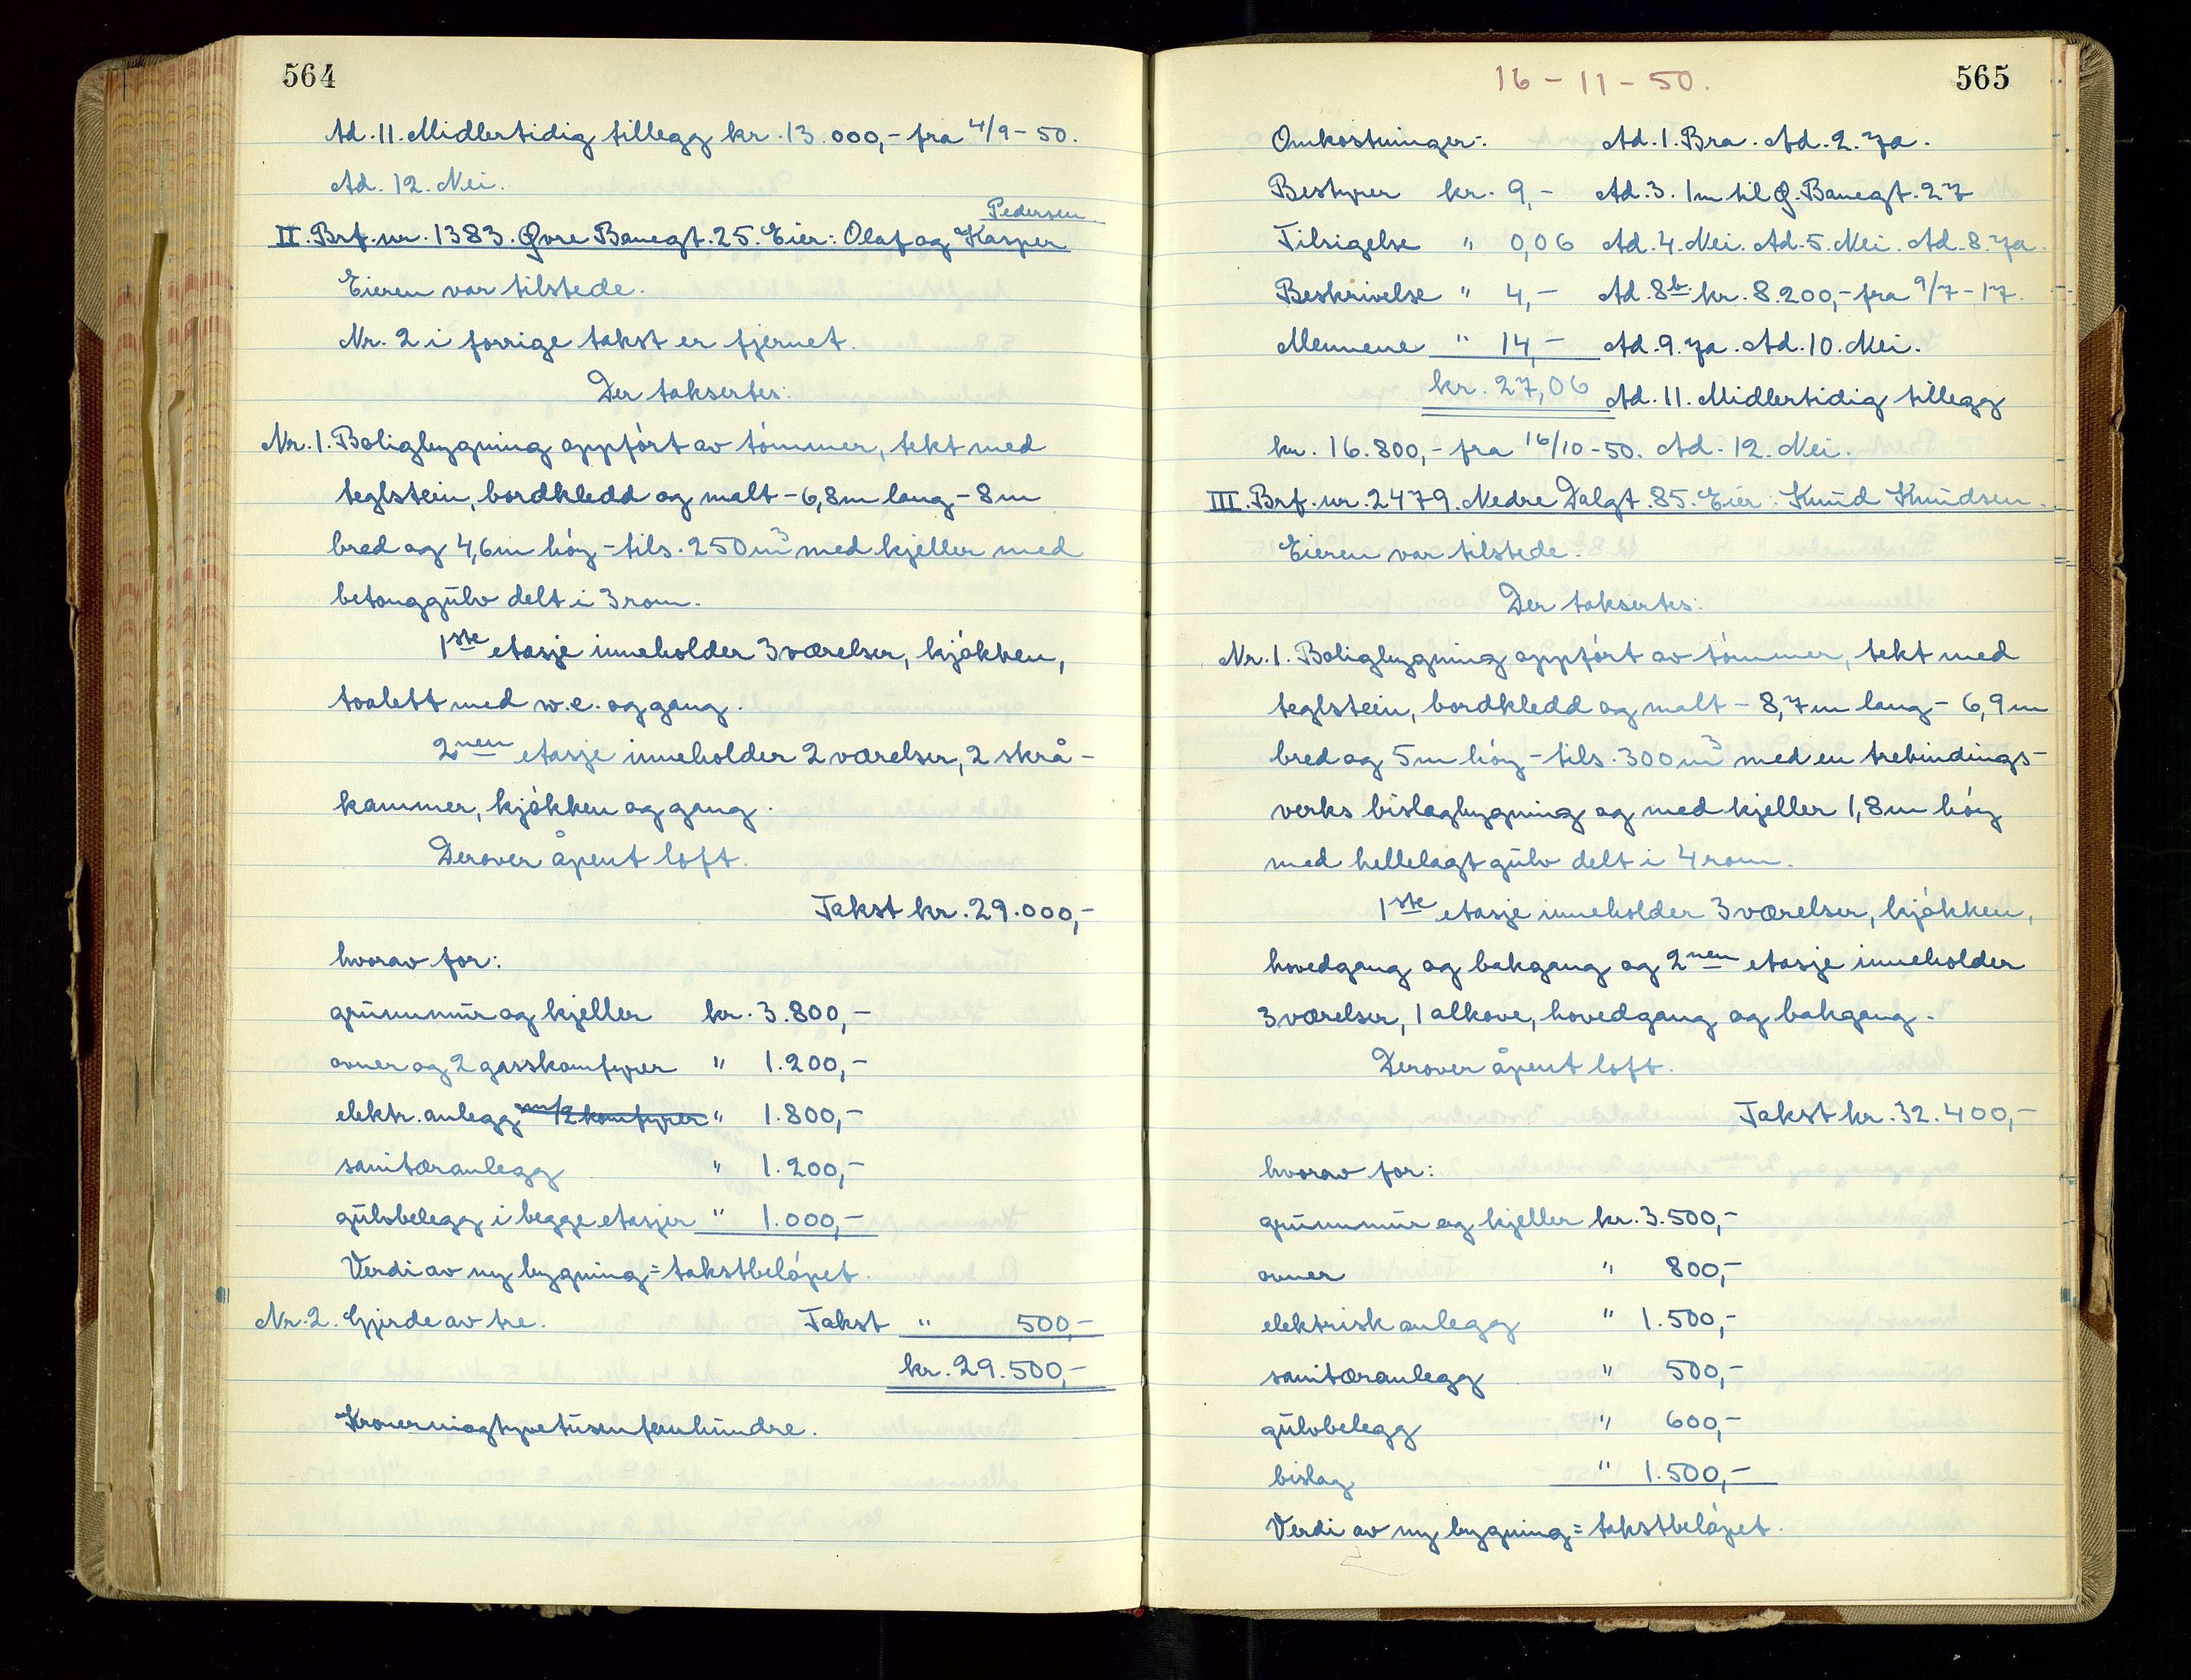 564
Ad. 11. Midlertidig tillegg kr. 13.000,- fra 4/9-50.
Ad. 12. Nei.
Pedersen
II. Brf. nr. 1383. Øvre Banegt. 25. Eier: Olaf og Kasper
Eieren var tilstede.
Nr. 2 i forrige takst er fjernet.
Der taksertes:
Nr. 1. Boligbygning oppført av tømmer, tekt med
teglstein, bordkledd og malt - 6,8m lang - 8m
bred og 4,6m høy - tils. 250m³ med kjeller med
betonggulv delt i 3 rom.
1ste etasje inneholder 3 værelser, kjøkken,
toalett med w.c. og gang.
2nen etasje inneholder 2 værelser, 2 skrå-
kammer, kjøkken og gang.
Derover åpent loft.
Takst kr. 29.000,-
hvorav for:
grunnmur og kjeller kr. 3.800,-
ovner og 2 gasskomfyrer " 1.200,-
elektr. anlegg m/2 komfyrer " 1.800,-
sanitæranlegg " 1.200,-
gulvbelegg i begge etasjer " 1.000,-
Verdi av ny bygning = takstbeløpet.
Nr. 2. Gjerde av tre. Takst " 500,-
kr. 29.500,-
Kronerniogtyvetusenfemhundre.
16-11-50.
565
Omkostninger: Ad. 1. Bra. Ad. 2. Ja.
Bestyrer kr. 9,- Ad. 3. 1m til Ø. Banegt. 27
Tilsigelse " 0,06 Ad. 4. Nei. Ad. 5. Nei. Ad. 8. Ja.
Beskrivelse " 4,- Ad. 8b. kr. 8.200,- fra 9/7-17.
Mennene " 14,- Ad. 9. Ja. Ad. 10. Nei.
kr. 27,06 Ad. 11. Midlertidig tillegg
kr. 16.800,- fra 16/10-50. Ad. 12. Nei.
III. Brf. nr. 2479. Nedre Dalgt. 85. Eier: Knud Knudsen.
Eieren var tilstede.
Der taksertes:
Nr. 1. Boligbygning oppført av tømmer, tekt med
teglstein, bordkledd og malt - 8,7m lang - 6,9m
bred og 5m høy - tils. 300m³ med en trebindings-
verks bislagbygning og med kjeller 1,8m høy
med hellelagt gulv delt i 4 rom.
1ste etasje inneholder 3 værelser, kjøkken,
hovedgang og bakgang og 2nen etasje inneholder
3 værelser, 1 alkove, hovedgang og bakgang.
Derover åpent loft.
Takst kr. 32.400,-
hvorav for:
grunnmur og kjeller kr. 3.500,-
ovner " 800,-
elektrisk anlegg " 1.500,-
sanitæranlegg " 500,-
gulvbelegg " 600,-
bislag " 1.500,-
Verdi av ny bygning = takstbeløpet.